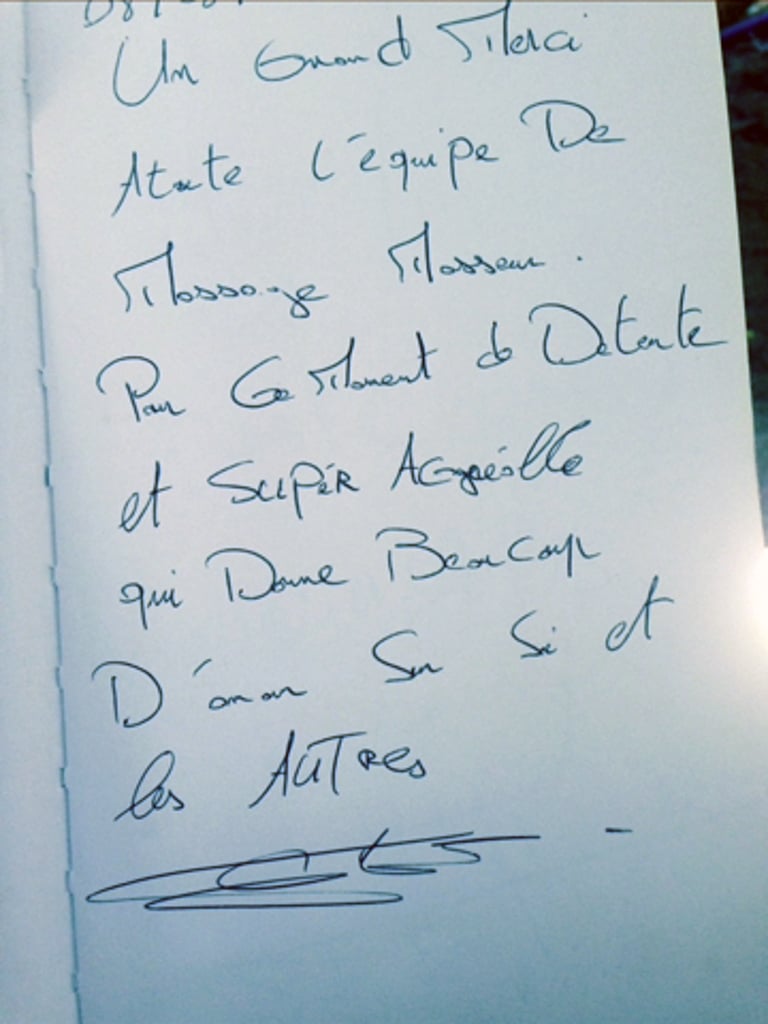 Un Grand Merci
Atoute L'équipe De
Massage Masseur.
Pour Ce Moment de Detente
et SUPÉR Agréable
qui Donne Beaucoup
D'amour Sur Si et
les AUTRES